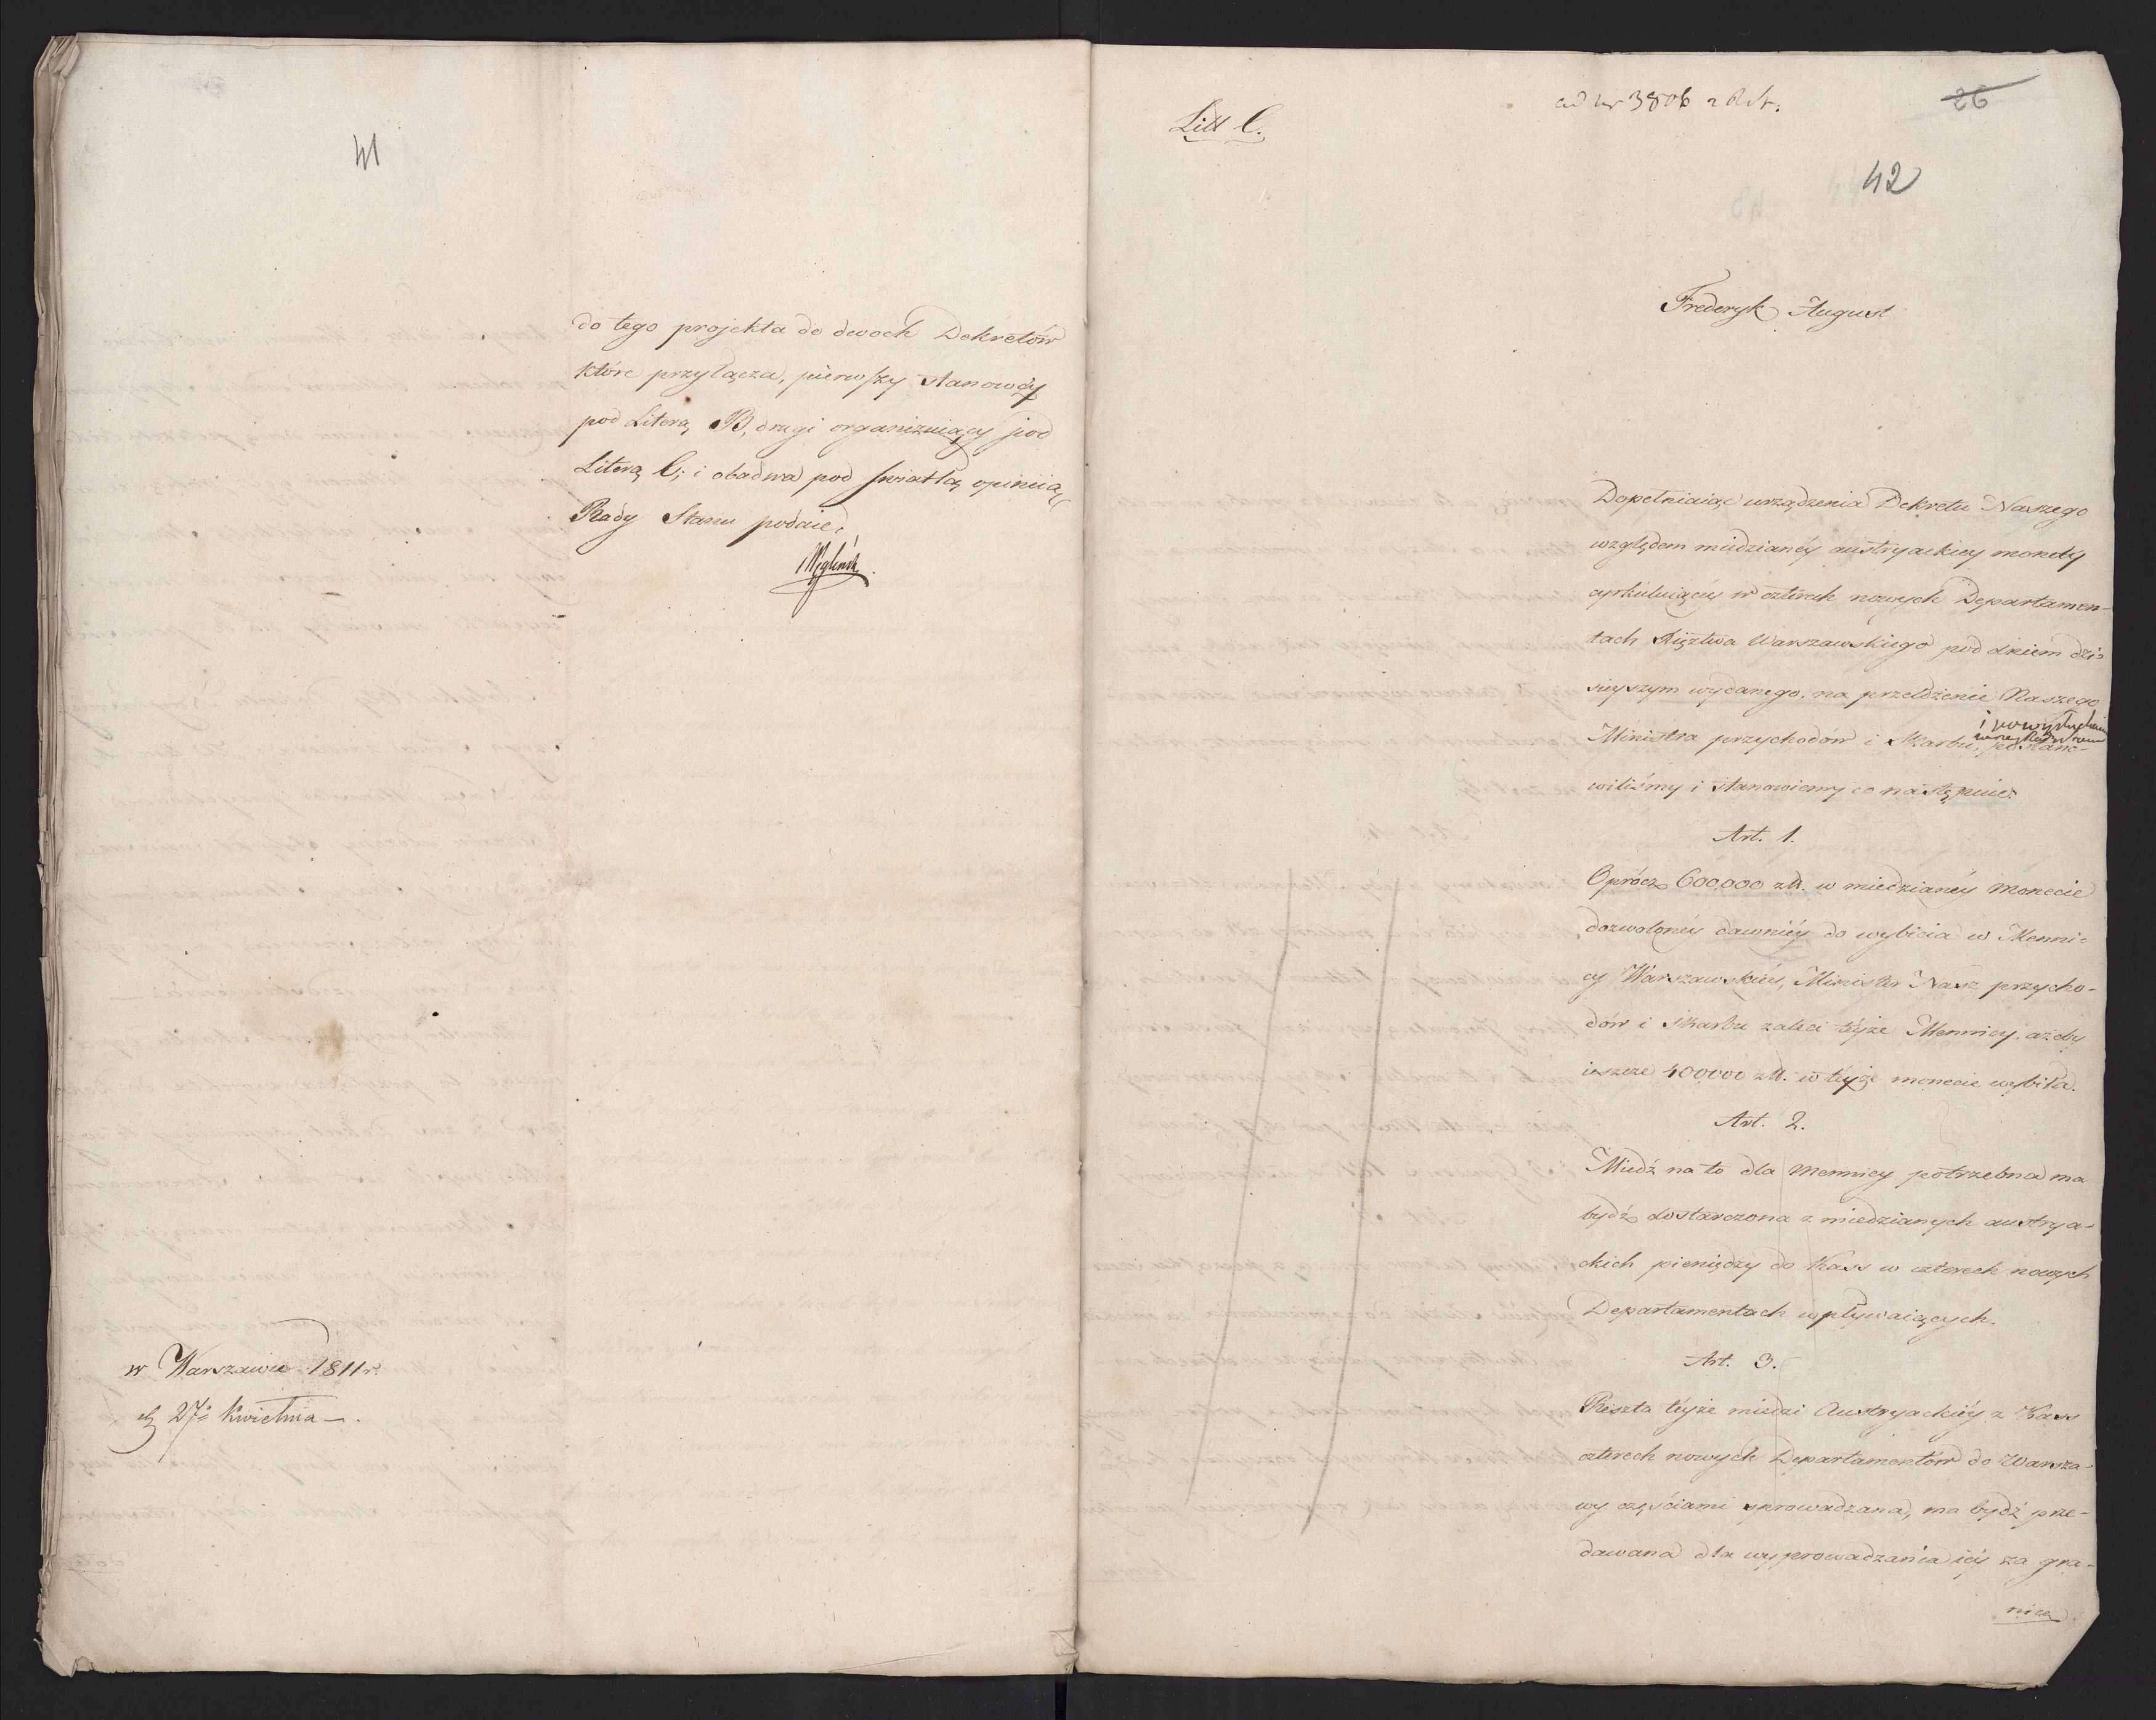 41
do tego projekta do dwoch Dekretów
które przyłącza, pierwszy stanowąy
pod Literą B, drugi organizuiący pod
Literą C, i obadwa pod swiatłą opiniią
Rady Stanu podaie.
Węgleński
w Warszawie 1811 r.
d. 27° Kwietnia
Litt C.
ad Nr 3806 R St.
26
42
Frederyk August
Dopełniaiąc urządzenia Dekretu Naszego
względem miedzianéy austryackiey monety
cyrkuluiącéy w czterech nowych Departamen-
tach Xięztwa Warszawskiego pod dniem dzi-
sieyszym wydanego, na przełożenie Naszego
i po wysłuchaniu
Ministra przychodów i Skarbu, postano-
wiliśmy i stanowiemy co następuie:
Art. 1.
Oprócz 600,000 złł. w miedzianéy monecie
dozwolonéy dawniéy do wybicia w Menni-
cy Warszawskiéy, Minister Nasz przycho-
dów i skarbu zaleci téyże Mennicy, ażeby
ieszcze 400000 złł. w téyże monecie wybiła.
Art. 2.
Miedź na to dla Mennicy potrzebna ma
bydź dostarczona z miedzianych austrya-
ckich pieniędzy do Kass w czterech nowych
Departamentach wpływaiących.
Art. 3.
Reszta téyże miedzi Austryackiéy z Kass
czterech nowych Departamentów do Warsza-
wy częściami sprowadzana, ma bydź prze-
dawana dla wyprowadzania iéy za gra-
nicę